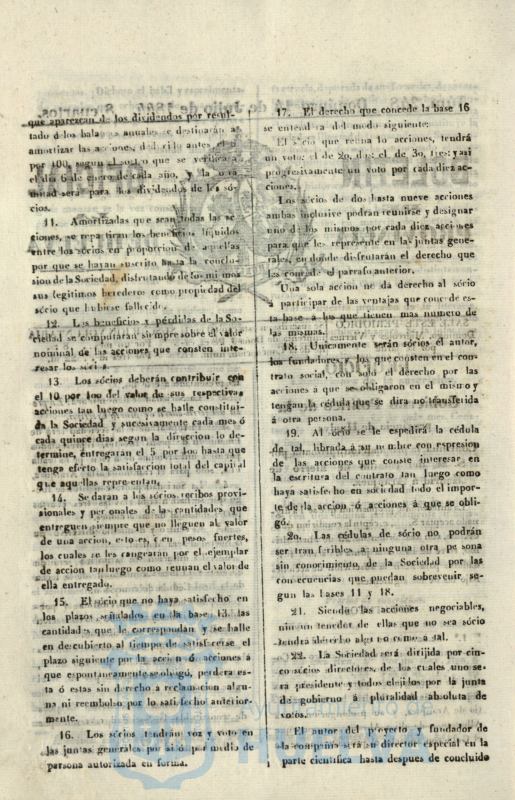 que aparezcan de los dividendos por resul-
tado de los balances anuales se destinarán á
amortizar las acciones, del
por 100, segun el sorteo que se verificará
el dia 6 de enero de cada año, y la otra
mitad será para los dividendos de los só-
cios.
11. Amortizadas que sean todas las ac-
ciones, se repartiran los beneficios líquidos
entre los sócios en proporcion de aquellas
por que se hayan suscrito hasta la conclu-
sion de la Sociedad, disfrutando de los mismos
sus legitimos herederos como propiedad del
sócio que hubiese fallecido.
12. Los beneficios y pérdidas de la So-
ciedad se computarán siempre sobre el valor
nominal de las acciones que consten inte-
resar los sócios.
13. Los sócios deberán contribuir con
el 10 por 100 del valor de sus respectivas
acciones tan luego como se halle constitui-
da la Sociedad y sucesivamente cada mes ó
cada quince dias segun la direccion lo de-
termine, entregarán el 5 por 100 hasta que
tenga efecto la satisfaccion total del capital
que aquellas representan.
14. Se darán a los sócios recibos provi-
sionales y personales de las cantidades que
entreguen siempre que no lleguen al valor
de una accion, esto es, en pesos fuertes,
los cuales se les cangearán por el ejemplar
de accion tan luego como reunan el valor de
ella entregado.
15. El sócio que no haya satisfecho en
los plazos señalados en la base 13 las
cantidades que le correspondan y se halle
en descubierto al tiempo de satisfacerse el
plazo siguiente por la accion ó acciones á
que espontaneamente se obligó, perderá es-
ta ó estas sin derecho á reclamacion algu-
na ni reembolso por lo satisfecho anterior-
mente.
16. Los sócios tendrán voz y voto en
las juntas generales por si ó por medio de
persona autorizada en forma.
17. El derecho que concede la base 16
se entenderá del modo siguiente:
El sócio que reuna 10 acciones, tendrá
un voto: el de 20, dos: el de 30, tres: y asi
progresivamente un voto por cada diez ac-
ciones.
Los sócios de dos hasta nueve acciones
ambas inclusive podrán reunirse y designar
uno de los mismos por cada diez acciones
para que les represente en las juntas gene-
rales, en donde disfrutarán el derecho que
les concede el parrafo anterior.
Una sola accion no da derecho al sócio
á participar de las ventajas que concede es-
ta base á los que tienen mas número de
las mismas.
18. Unicamente serán sócios el autor,
los fundadores y los que consten en el con-
trato social, con solo el derecho por las
acciones á que se obligaron en el mismo y
tengan la cédula que se dirá no transferida
á otra persona.
19. Al sócio se le espedirá la cédula
de tal, librada á su nombre con espresion
de las acciones que conste interesar en
la escritura del contrato tan luego como
haya satisfecho en sociedad todo el impor-
te de la accion ó acciones á que se obli-
gó.
20. Las cédulas de sócio no podrán
ser transferibles á ninguna otra persona
sin conocimiento de la Sociedad por las
consecuencias que puedan sobrevenir se-
gun las bases 11 y 18.
21. Siendo las acciones negociables,
ningun tenedor de ellas que no sea sócio
tendrá derecho alguno como á tal.
22. La Sociedad será dirijida por cin-
co sócios directores, de los cuales uno se-
rá presidente y todos elejidos por la junta
de gobierno á pluralidad absoluta de
votos.
El autor del proyecto y fundador de
la compañia será su director especial en la
parte cientifica hasta despues de concluido